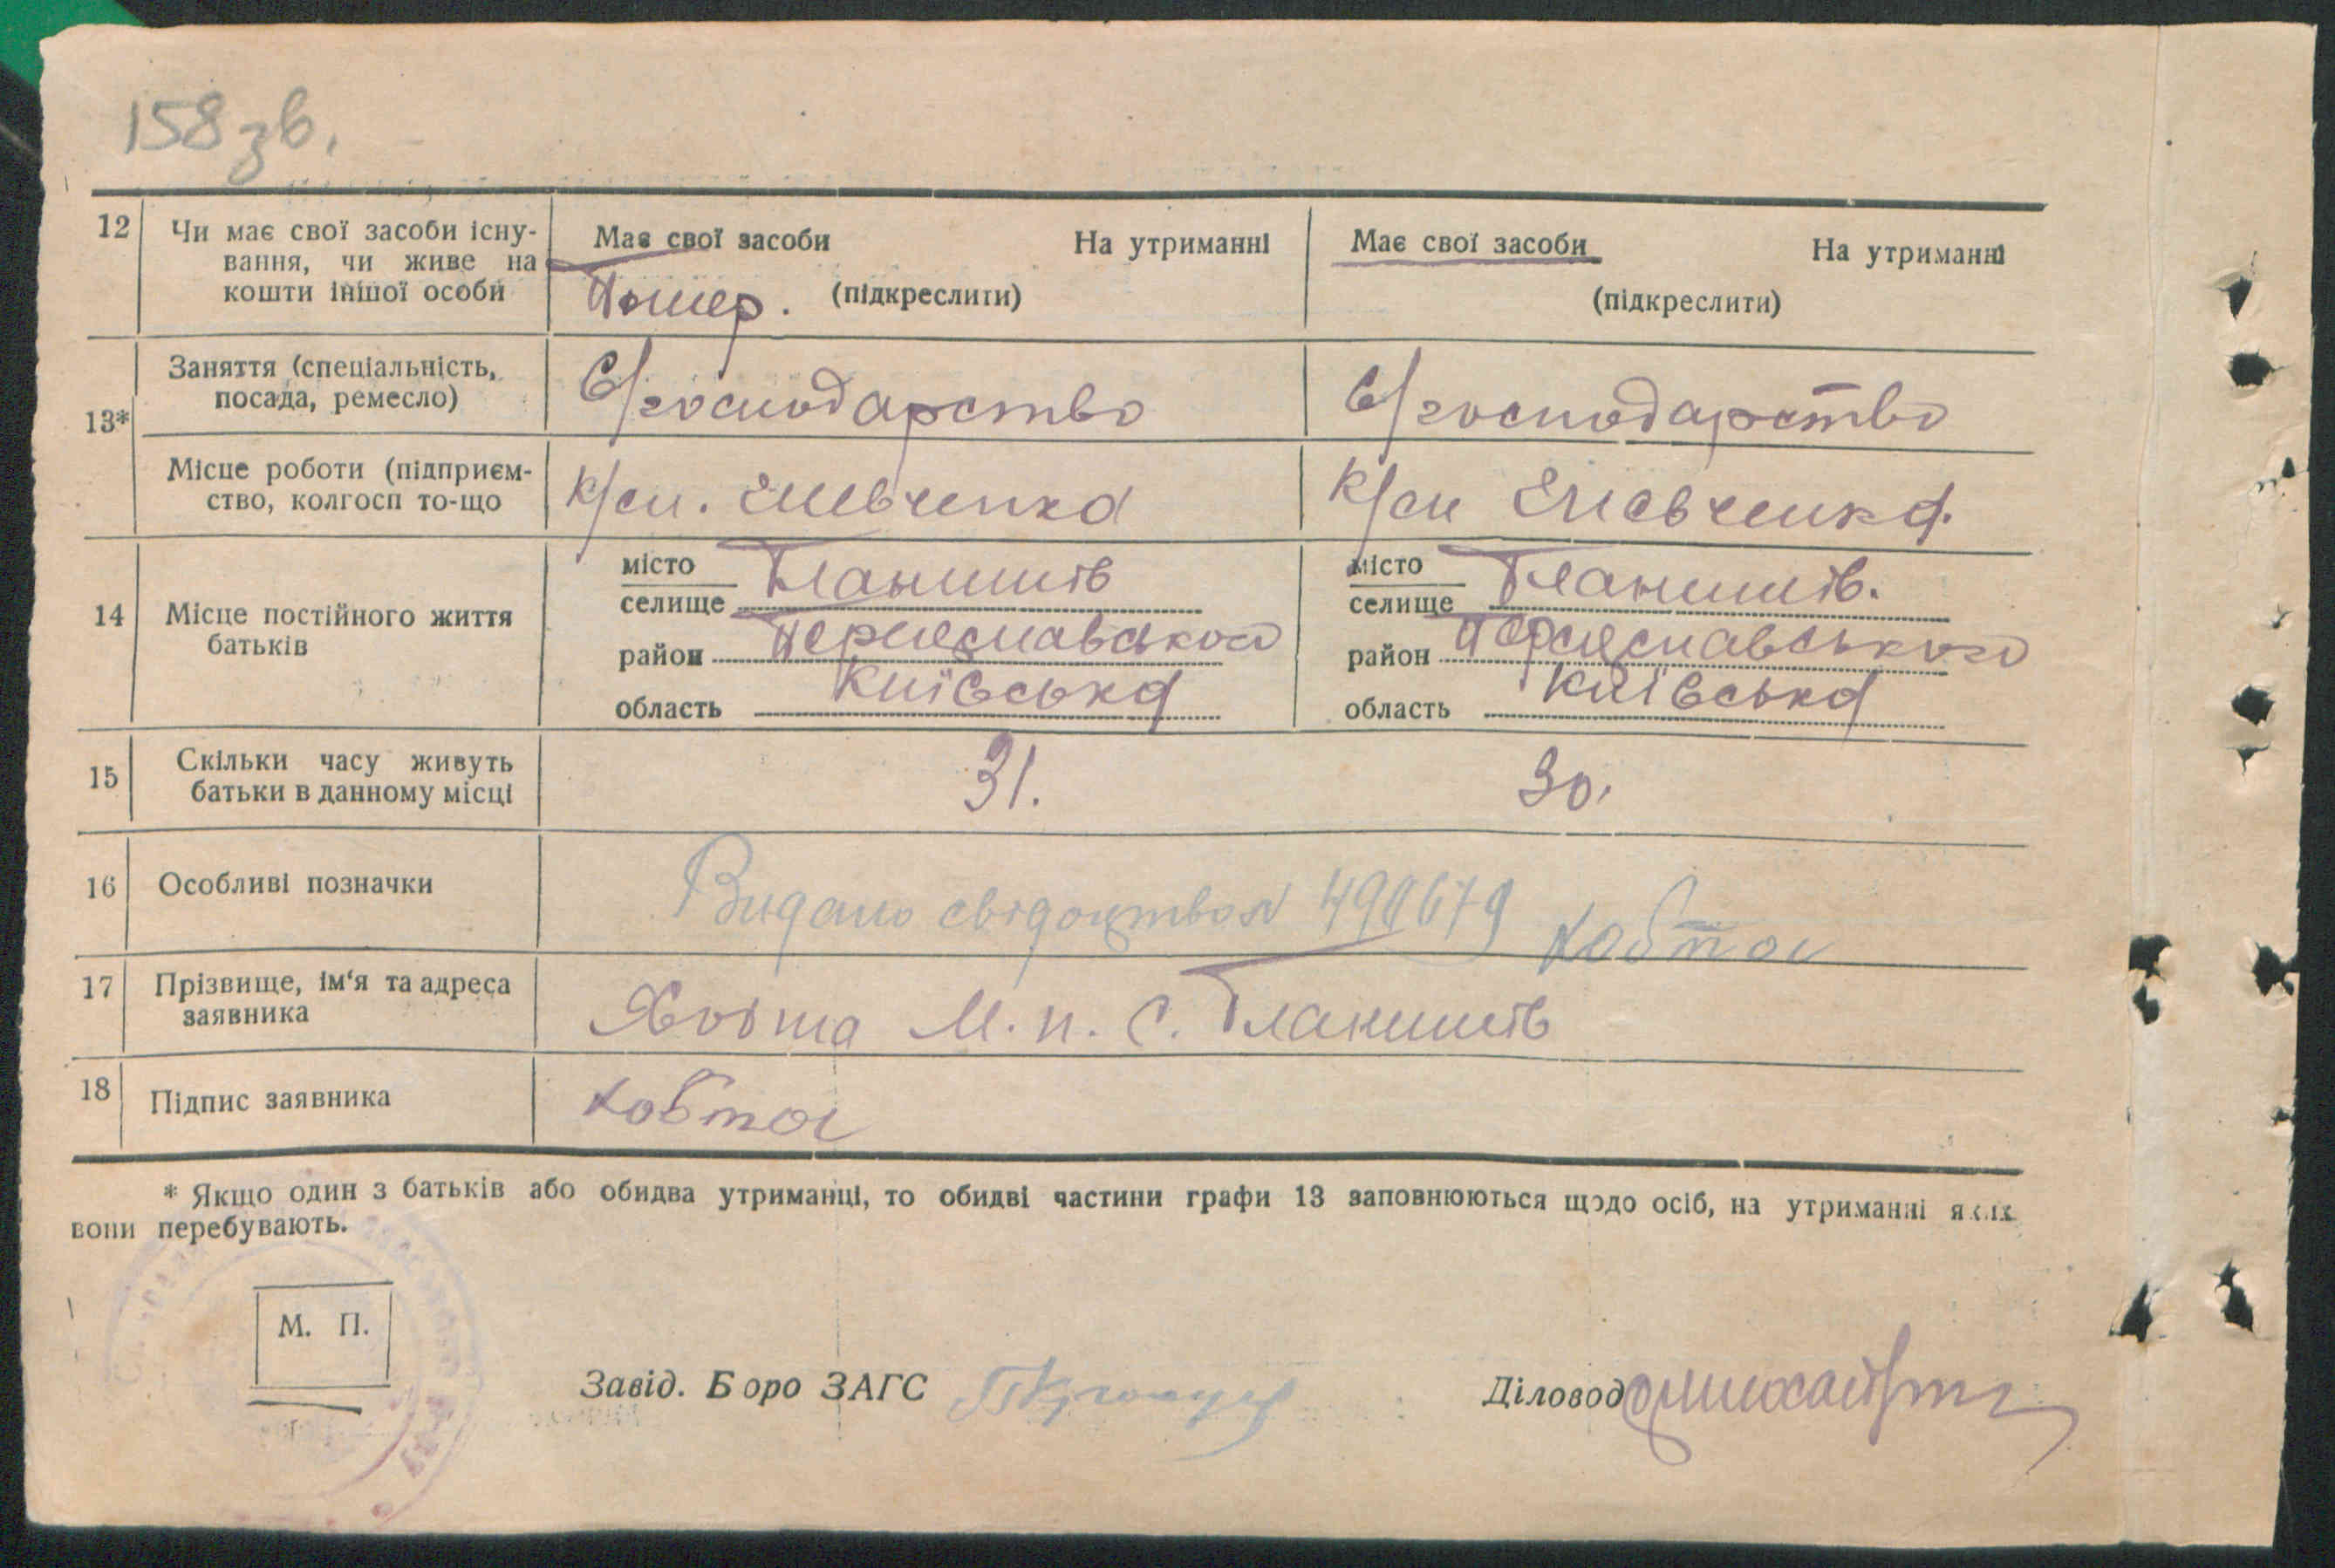 158 зв.
12 Чи має свої засоби існу-
вання, чи живе на
кошти іншої особи
Має свої засоби На утриманні
Помер. (підкреслити)
Має свої засоби На утриманні
(підкреслити)
13*
Заняття (спеціальність,
посада, ремесло)
С/господарство
С/господарство
Місце роботи (підприєм-
ство, колгосп то-що
к/сп. Шевченка
к/сп Шевченка.
14 Місце постійного життя
батьків
місто
селище Гланишів
район Переяславського
область Київська
місто
селище Гланишів.
район Переяславського
область Київська
15 Скільки часу живуть
батьки в данному місці
31.
30.
16 Особливі позначки
Видано свідоцтво N Ковтог
17 Прізвище, ім'я та адреса
заявника
М. п. С. Гланишів
18 Підпис заявника
* Якщо один з батьків або обидва утриманці, то обидві частини графи 13 заповнюються щодо осіб, на утриманні яких
вони перебувають.
М. П.
Завід. Боро ЗАГС
Діловод